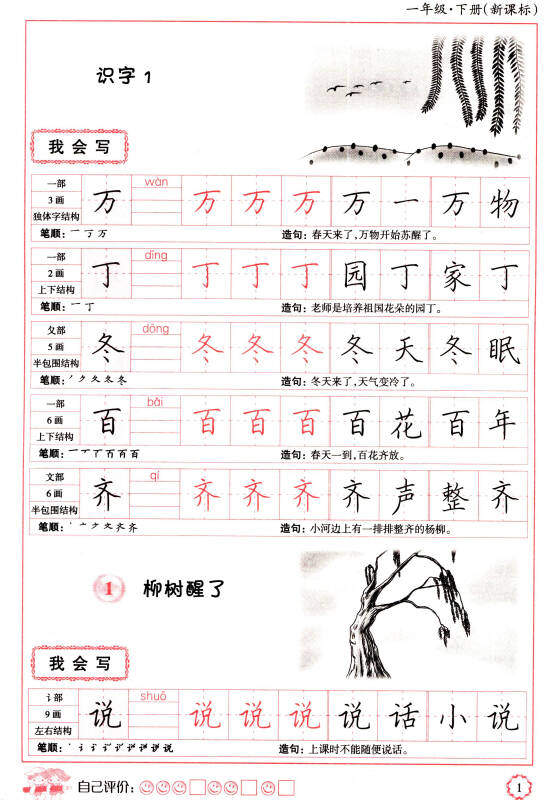 一年级·下册(新课标)
识字 1
我会写
一部 wàn
3 画 万 万 万 万 万 一 万 物
独体字结构
笔顺: 一 丆 万 造句: 春天来了,万物开始苏醒了。
一部 dīng
2 画 丁 丁 丁 丁 园 丁 家 丁
上下结构
笔顺: 一 丁 造句: 老师是培养祖国花朵的园丁。
夂部 dōng
5 画 冬 冬 冬 冬 冬 天 冬 眠
半包围结构
笔顺: 造句: 冬天来了,天气变冷了。
一部 bǎi
6 画 百 百 百 百 百 花 百 年
上下结构
笔顺: 造句: 春天一到,百花齐放。
文部 qí
6 画 齐 齐 齐 齐 齐 声 整 齐
半包围结构
笔顺: 造句: 小河边上有一排排整齐的杨柳。
1 柳树醒了
我会写
讠部 shuō
9 画 说 说 说 说 说 话 小 说
左右结构
笔顺: 造句: 上课时不能随便说话。
自己评价:
1